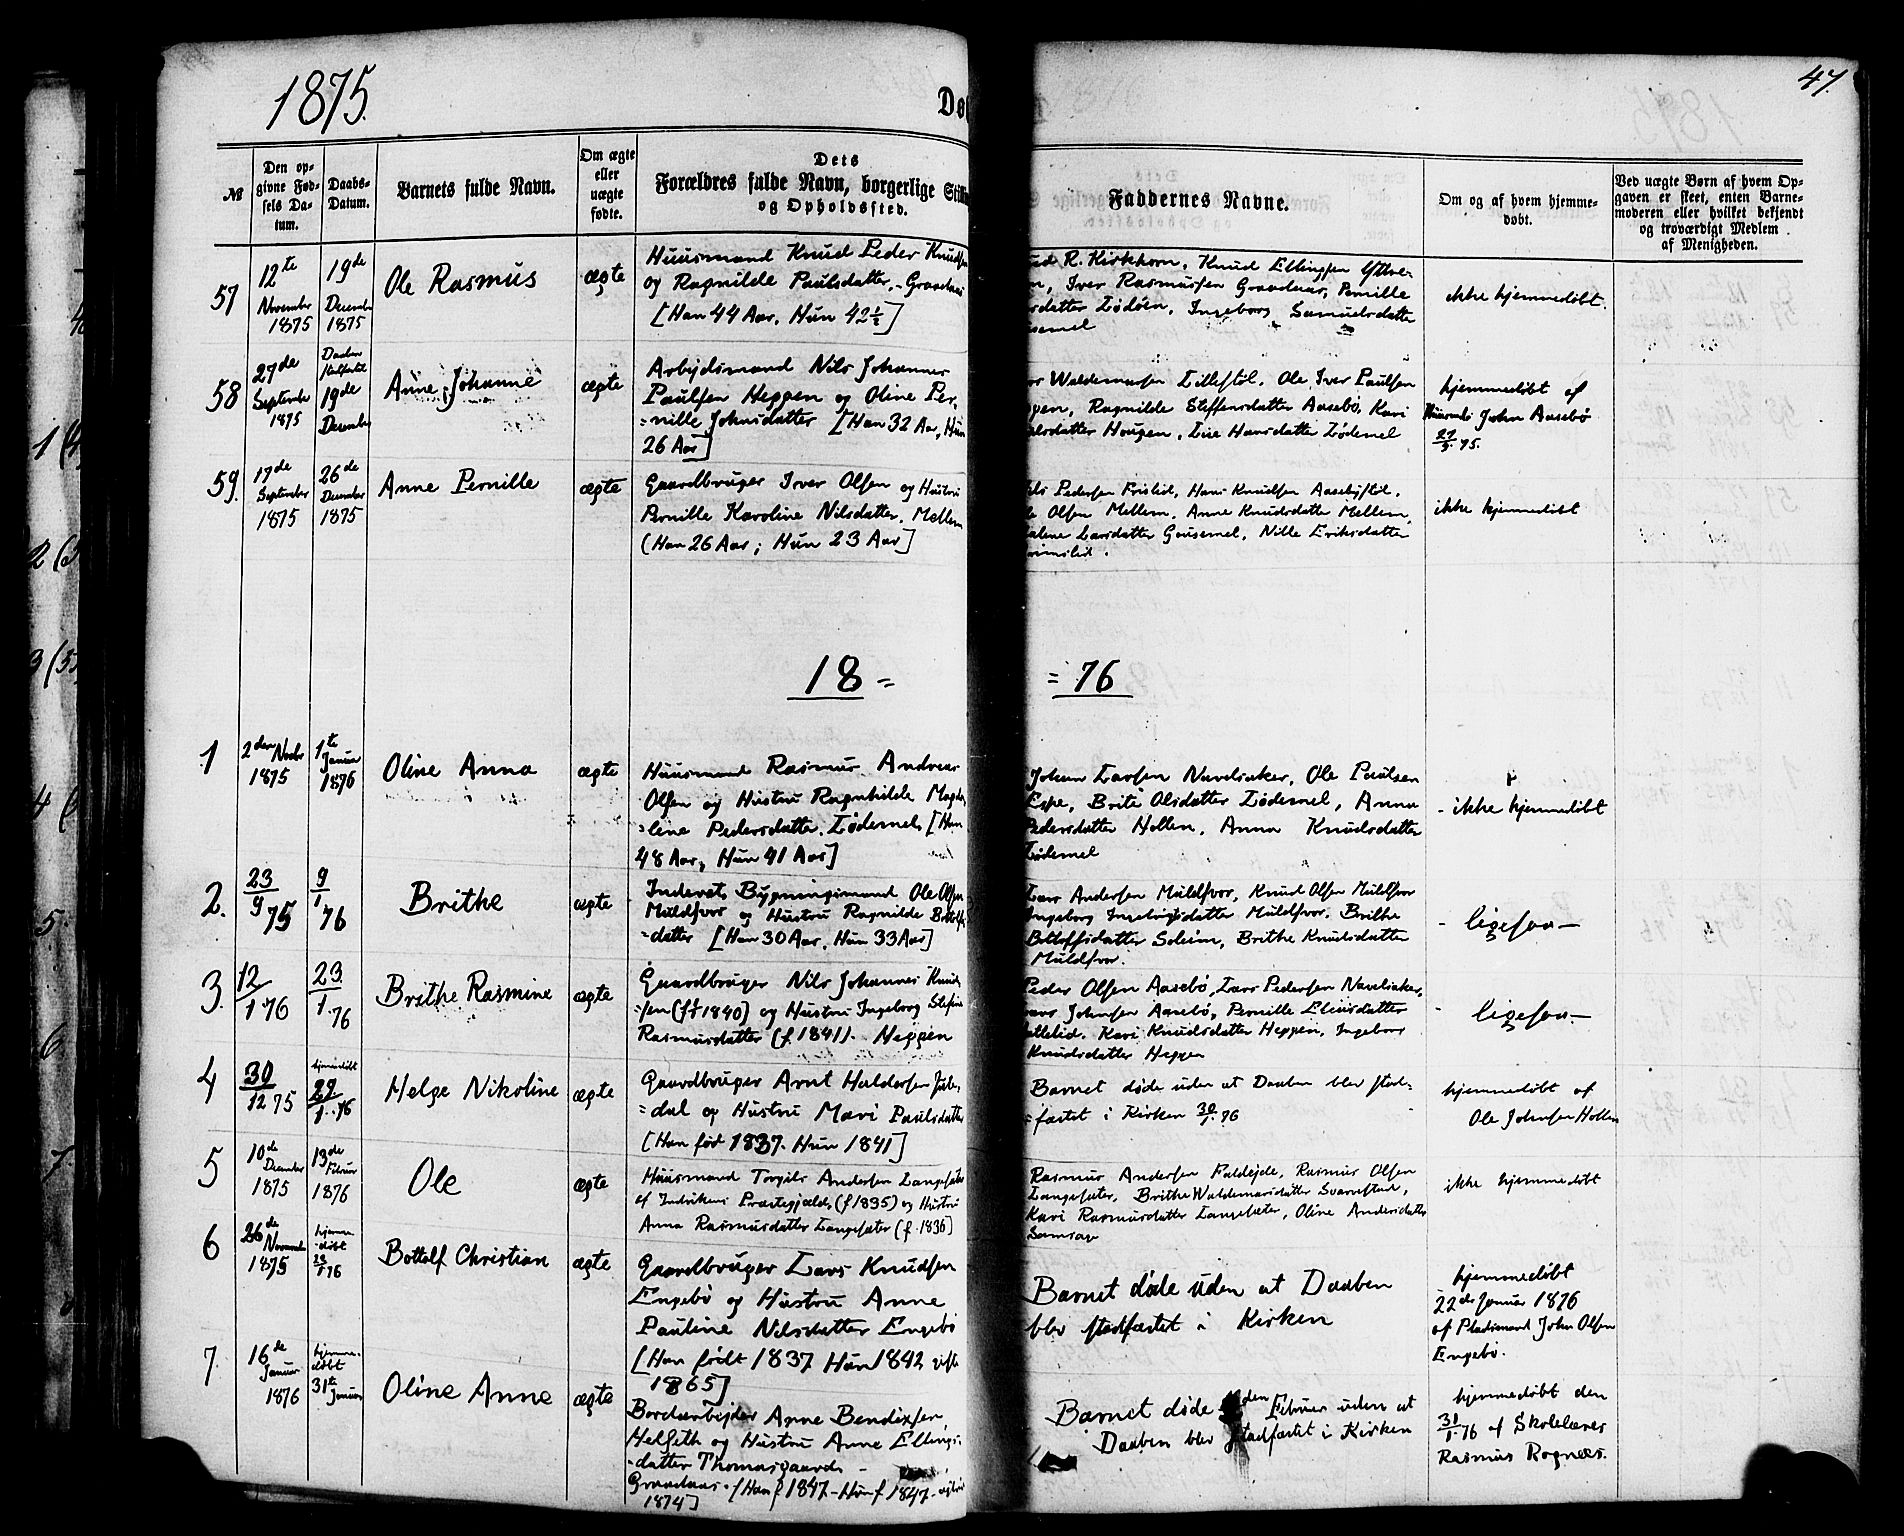 1875.
47.
Dø
№
Den op-
givne Fød-
sels Da-
tum.
Daabs-
Datum.
Barnets fulde Navn.
Om ægte
eller
uægte
fødte.
Dets
Forældres fulde Navn, borgerlige Still
og Opholdssted.
Faddernes Navne.
Om og af hvem hjemme-
døbt.
Ved uægte Børn af hvem Op-
gaven er skeet, enten Barne-
moderen eller hvilket bekjendt
og troværdigt Medlem
af Menigheden.
57
12te
November
1875
19de
December
1875
Ole Rasmus
ægte
Huusmand Knud Peder Knudsen
og Ragnilde Paulsdatter,
[Han 44 Aar, Hun 42½]
R. Kirkhorn, Knud Ellingsen
Iver Rasmussen Graadaar, Pernille
datter Lødøen, Ingeborg Samuelsdatter
ikke hjemmedøbt.
58
27de
September
1875
Daaben
stadfæstet
19de
December
Anne Johanne
ægte
Arbejdsmand Nils Johannes
Paulsen Heggen og Oline Per-
=nille Johnsdatter [Han 32 Aar, Hun
26 Aar]
Waldemarsen Lillestøl, Ole Iver Paulsen
Ragnilde Steffensdatter Aasebø, Kari
datter Hougen, Line Hansdatter Lødemel
hjemmedøbt af
John Aasebø
27/9 75.
59.
17de
September
1875
26de
December
1875
Anne Pernille
ægte
Gaardbruger Iver Olsen og Hustru
Pernille Karoline Nilsdatter, Mellem
(Han 26 Aar; Hun 23 Aar]
Pedersen Frislid, Hans Knudsen Aasebøstøl,
Olsen Mellem, Anne Knudsdatter Mellem,
Larsdatter Gausemel, Nille Eriksdatter
ikke hjemmedøbt
18 =
= 76
1
2den Novbr
1875
1te
Januar
1876
Oline Anna
ægte
Huusmand Rasmus Andreas
Olsen og Hustru Ragnhilde Magda
=lene Pedersdatter, Lødemel, [Han
48 Aar, Hun 41 Aar]
Johan Larsen Navelsaker, Ole Paulsen
Espe, Brite Olsdatter Lødemel, Anna
Pedersdatter Hollen, Anna Knudsdatter
Lødemel
- ikke hjemmedøbt
2.
23/9 75
9/1 76
Brithe
ægte
Inderst, Bygningsmand Ole Olsen
Muldsvor og Hustru Ragnilde Bottolfs
=datter [Han 30 Aar, Hun 33 Aar]
Lars Andersen Muldsvor, Knud Olsen Muldsvor
Ingeborg Ingebrigtsdatter Muldsvor, Brithe
Bottolfsdatter Soleim, Brithe Knudsdatter
Muldsvor.
- ligesaa -
3.
12/1 76
23/1 76
Brithe Rasmine
ægte
Gaardbruger Nils Johannes Knud
=sen (f. 1840) og Hustru Ingeborg Stefine
Rasmusdatter (f. 1841). Heggen
Peder Olsen Aasebø, Lars Pedersen Navelsaker,
Johnsen Aasebø, Pernille Eliasdatter
Kari Knudsdatter Heggen, Ingeborg
Knudsdatter Heggen
- ligesaa -
4
30/12 75
hjemmedøbt
29/1 76
Helge Nikoline
ægte
Gaardbruger Arnt Haldorsen
=dal og Hustru Mari Paulsdatter
[Han fød 1837. Hun 1841]
Barnet døde uden at Daaben blev stad-
=fæstet i Kirken 30/1 76
hjemmedøbt af
Ole Johnsen Hollen
5
10de
December
1875
13de
Februar
1876
Ole
ægte
Huusmand Torgils Andersen Langesæter
af Indvikens Præstegjeld, (f. 1835) og Hustru
Anna Rasmusdatter Langesæter (f. 1836)
Rasmus Andersen Faldejde, Rasmus Olsen
Langesæter, Brithe Waldemarsdatter Svarvestad,
Kari Rasmusdatter Langesæter, Oline Andersdatter
ikke hjemmedøbt
6
26de
November
1875
hjemme-
døbt
22/1 76
Bottolf Christian
ægte
Gaardbruger Lars Knudsen
Engebø og Hustru Anne
Pauline Nilsdatter Engebø
[Han født 1837 Hun 1842 gifte
1865]
Barnet døde uden at Daaben
blev stadfæstet i Kirken
hjemmedøbt
22de Januar 1876
af Pladsmand John Olsen
Engebø.
7.
16de
Januar
1876
hjemme-
døbt
31te
Januar
Oline Anne
ægte
Bordarbejder Arne Bendixsen
Helseth og Hustru Anne Ellings-
=datter Thomasgaard
[Han f. 1847 - Hun f. 1847 -
1874]
Barnet døde Februar uden at
Daaben blev stadfæstet i Kirken
hjemmedøbt den
31/1 76 af Skolelærer
Rasmus Rognes.